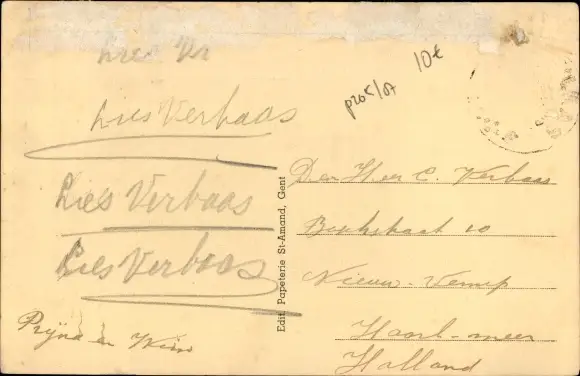 Lies Ver
Lies Verbaas
Lies Verbaas
Lies Verbaas
Prijna en Wim
Edit. Papeterie St-Amand, Gent
10€
Den Heer C. Verbaas
10
Nieuw-Vennep
Haarl-meer
Holland